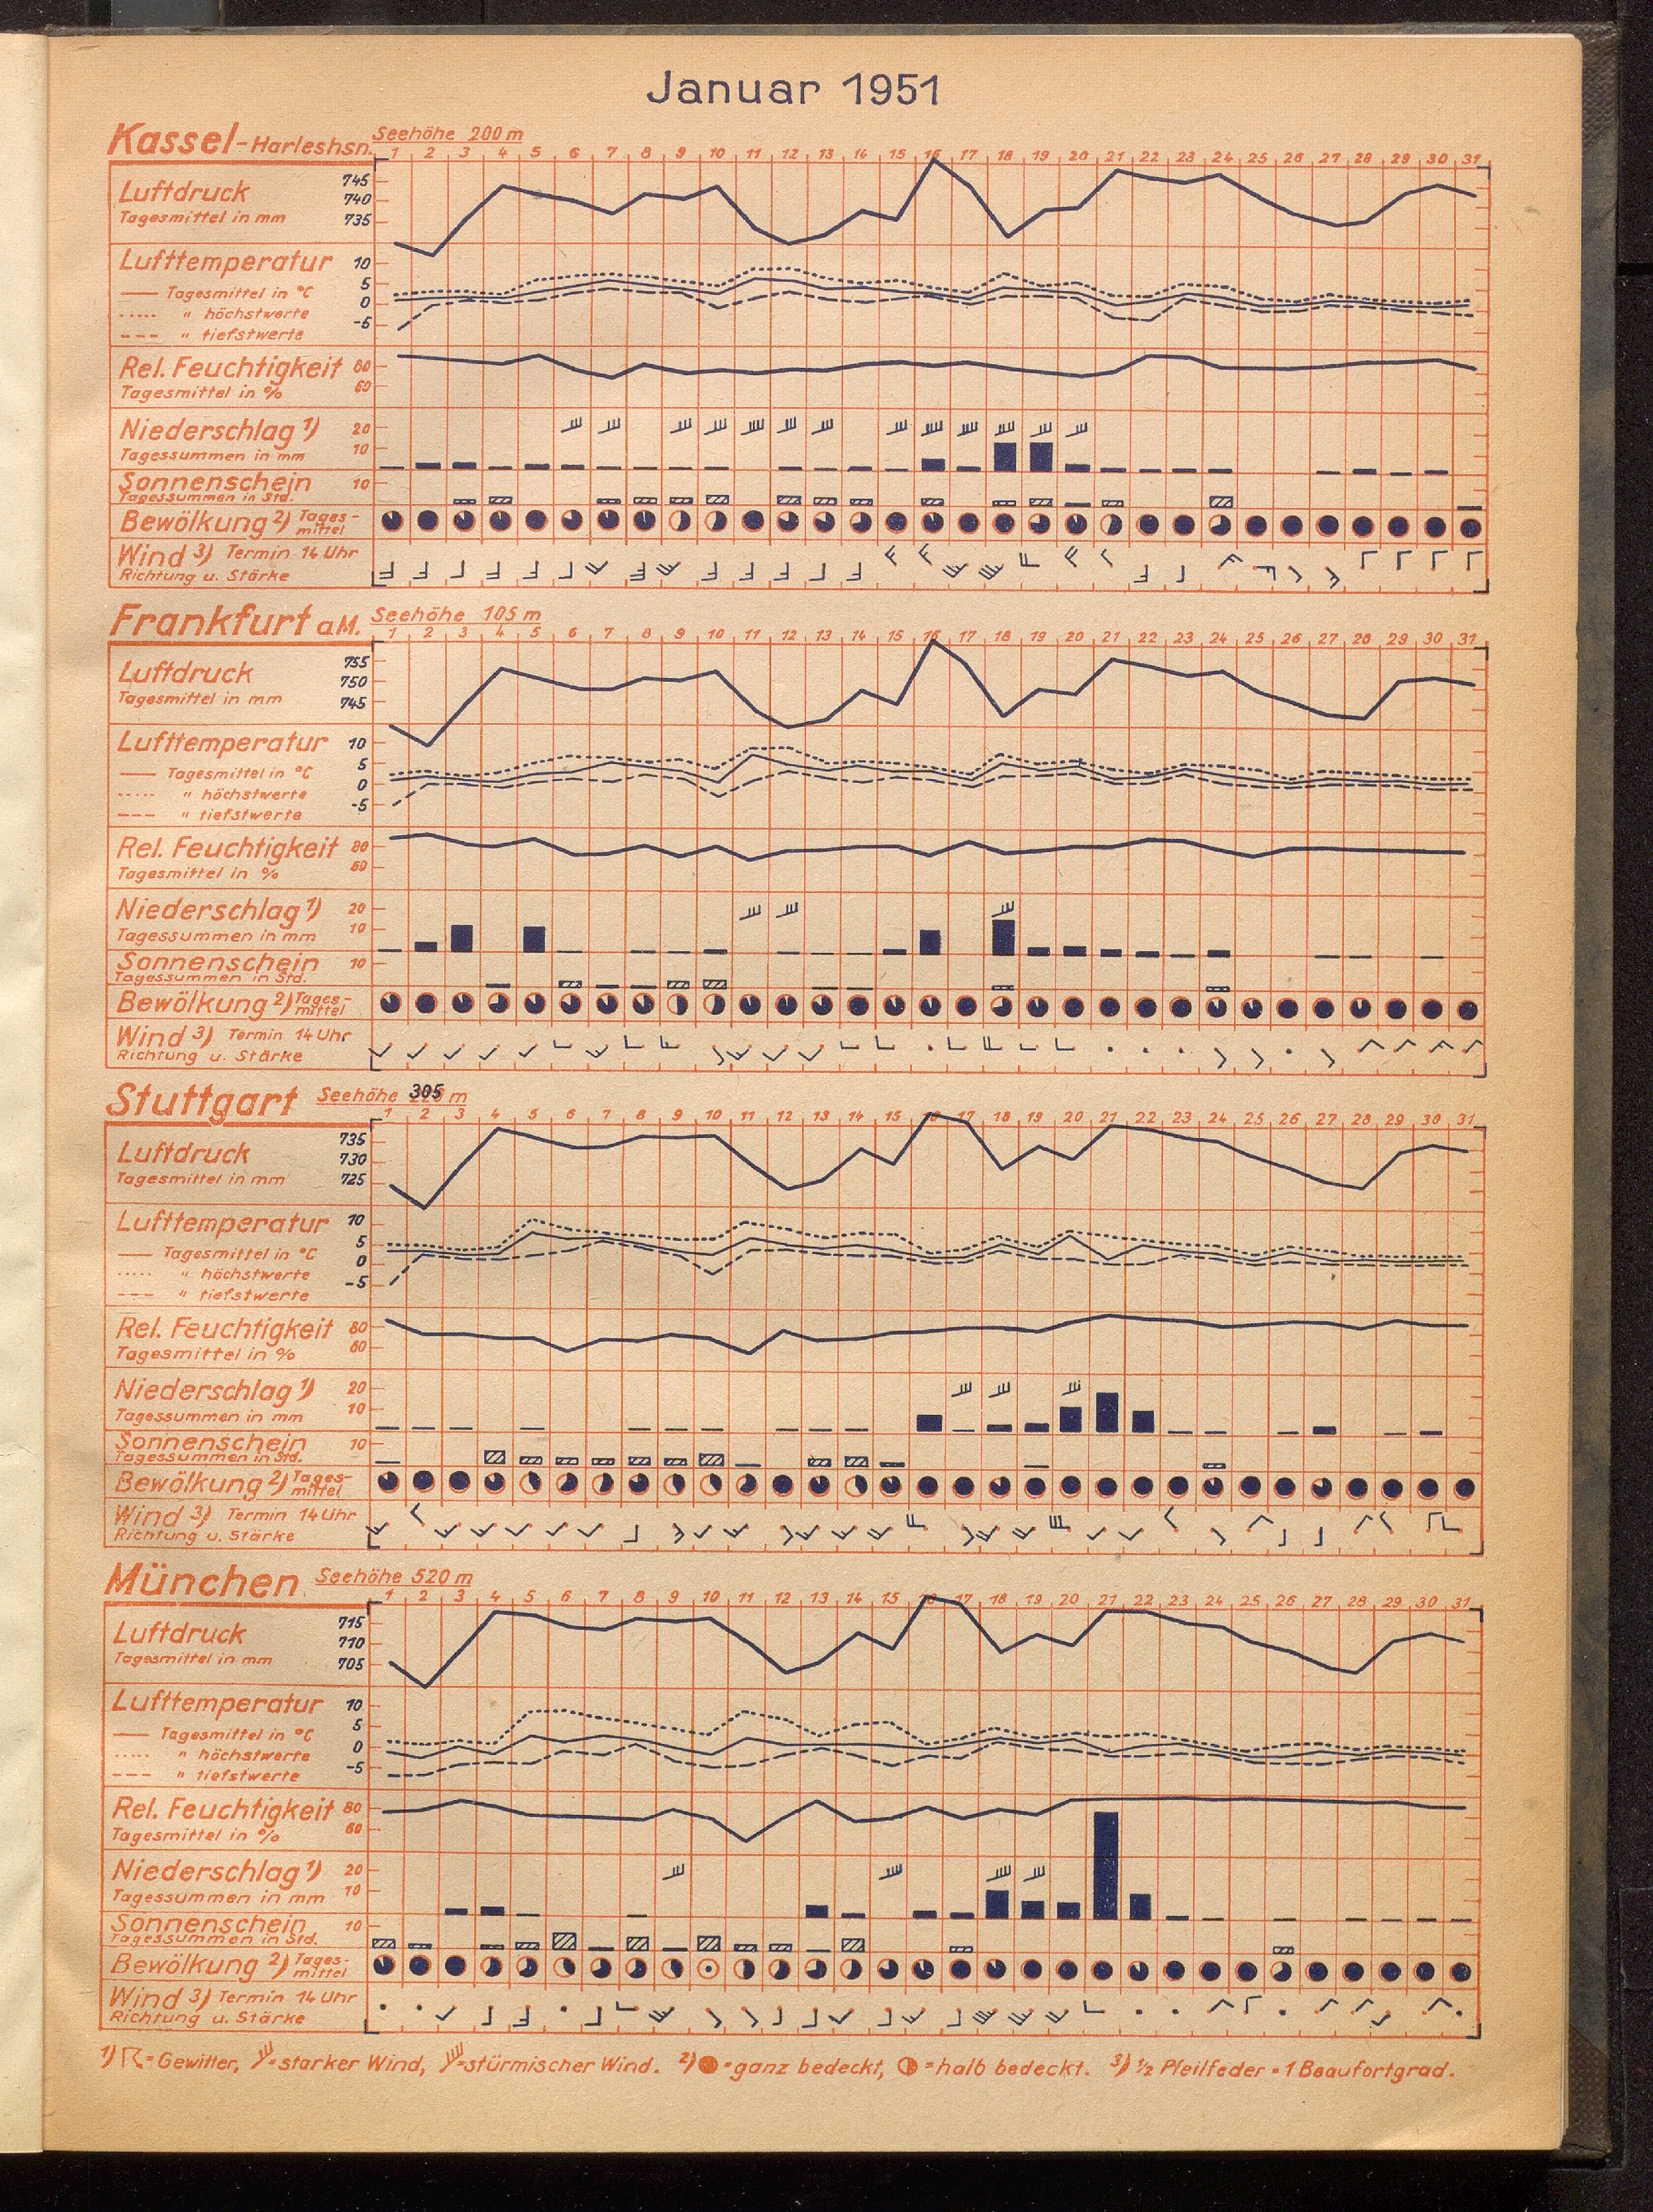 Januar 1951
Kassel-Harleshsn. Seehöhe 200 m
1 2 3 4 5 6 7 8 9 10 11 12 13 14 15 16 17 18 19 20 21 22 23 24 25 26 27 28 29 30 31
Luftdruck 745
740
Tagesmittel in mm 735
Lufttemperatur 10
5
Tagesmittel in °C
0
" höchstwerte
-5
" tiefstwerte
Rel. Feuchtigkeit 80
Tagesmittel in % 60
Niederschlag 1) 20
Tagessummen in mm 10
Sonnenschein 10
Tagessummen in Std.
Bewölkung 2) Tages-
mittel
Wind 3) Termin 14 Uhr
Richtung u. Stärke
Frankfurt a.M. Seehöhe 105 m
1 2 3 4 5 6 7 8 9 10 11 12 13 14 15 16 17 18 19 20 21 22 23 24 25 26 27 28 29 30 31
Luftdruck 755
750
Tagesmittel in mm 745
Lufttemperatur 10
5
Tagesmittel in °C
0
" höchstwerte
-5
" tiefstwerte
Rel. Feuchtigkeit 80
Tagesmittel in % 60
Niederschlag 1) 20
Tagessummen in mm 10
Sonnenschein 10
Tagessummen in Std.
Bewölkung 2) Tages-
mittel
Wind 3) Termin 14 Uhr
Richtung u. Stärke
Stuttgart Seehöhe 305 m
1 2 3 4 5 6 7 8 9 10 11 12 13 14 15 16 17 18 19 20 21 22 23 24 25 26 27 28 29 30 31
Luftdruck 735
730
Tagesmittel in mm 725
Lufttemperatur 10
5
Tagesmittel in °C
0
" höchstwerte
-5
" tiefstwerte
Rel. Feuchtigkeit 80
Tagesmittel in % 60
Niederschlag 1) 20
Tagessummen in mm 10
Sonnenschein 10
Tagessummen in Std.
Bewölkung 2) Tages-
mittel
Wind 3) Termin 14 Uhr
Richtung u. Stärke
München Seehöhe 520 m
1 2 3 4 5 6 7 8 9 10 11 12 13 14 15 16 17 18 19 20 21 22 23 24 25 26 27 28 29 30 31
Luftdruck 715
710
Tagesmittel in mm 705
Lufttemperatur 10
5
Tagesmittel in °C
0
" höchstwerte
-5
" tiefstwerte
Rel. Feuchtigkeit 80
Tagesmittel in % 60
Niederschlag 1) 20
Tagessummen in mm 10
Sonnenschein 10
Tagessummen in Std.
Bewölkung 2) Tages-
mittel
Wind 3) Termin 14 Uhr
Richtung u. Stärke
1) = Gewitter, = starker Wind, = stürmischer Wind. 2) = ganz bedeckt, = halb bedeckt. 3) 1/2 Pfeilfeder = 1 Beaufortgrad.